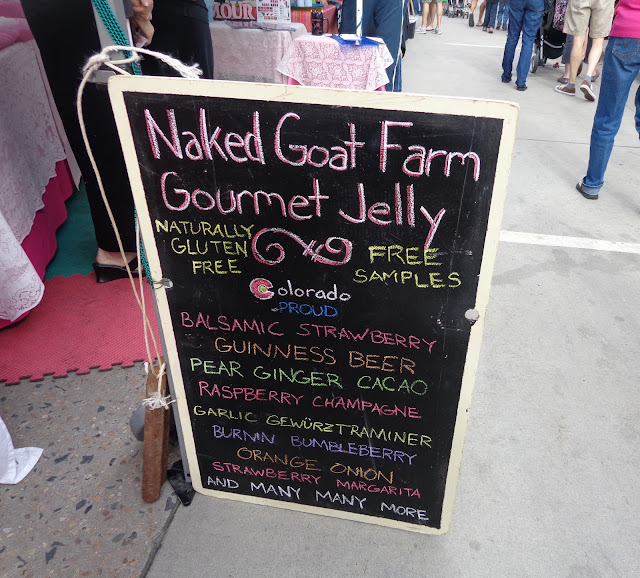 MOUR
Naked Goat Farm
Gourmet Jelly
NATURALLY
GLUTEN
FREE
FREE
SAMPLES
Colorado
PROUD
BALSAMIC STRAWBERRY
GUINNESS BEER
PEAR GINGER CACAO
RASPBERRY CHAMPAGNE
GARLIC GEWÜRZTRAMINER
BURNIN BUMBLEBERRY
ORANGE ONION
STRAWBERRY MARGARITA
AND MANY MANY MORE